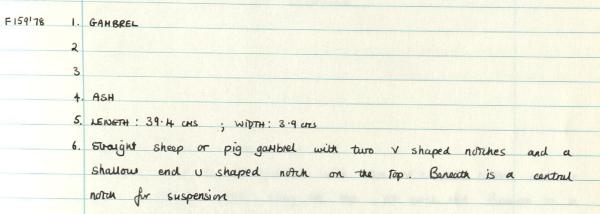 F159'78 1. GAMBREL
2
3
4. ASH
5. LENGTH: 39.4 CMS ; WIDTH: 3.9 CMS
6. Straight sheep or pig gambrel with two V shaped notches and a
shallow end U shaped notch on the top. Beneath is a central
notch for suspension